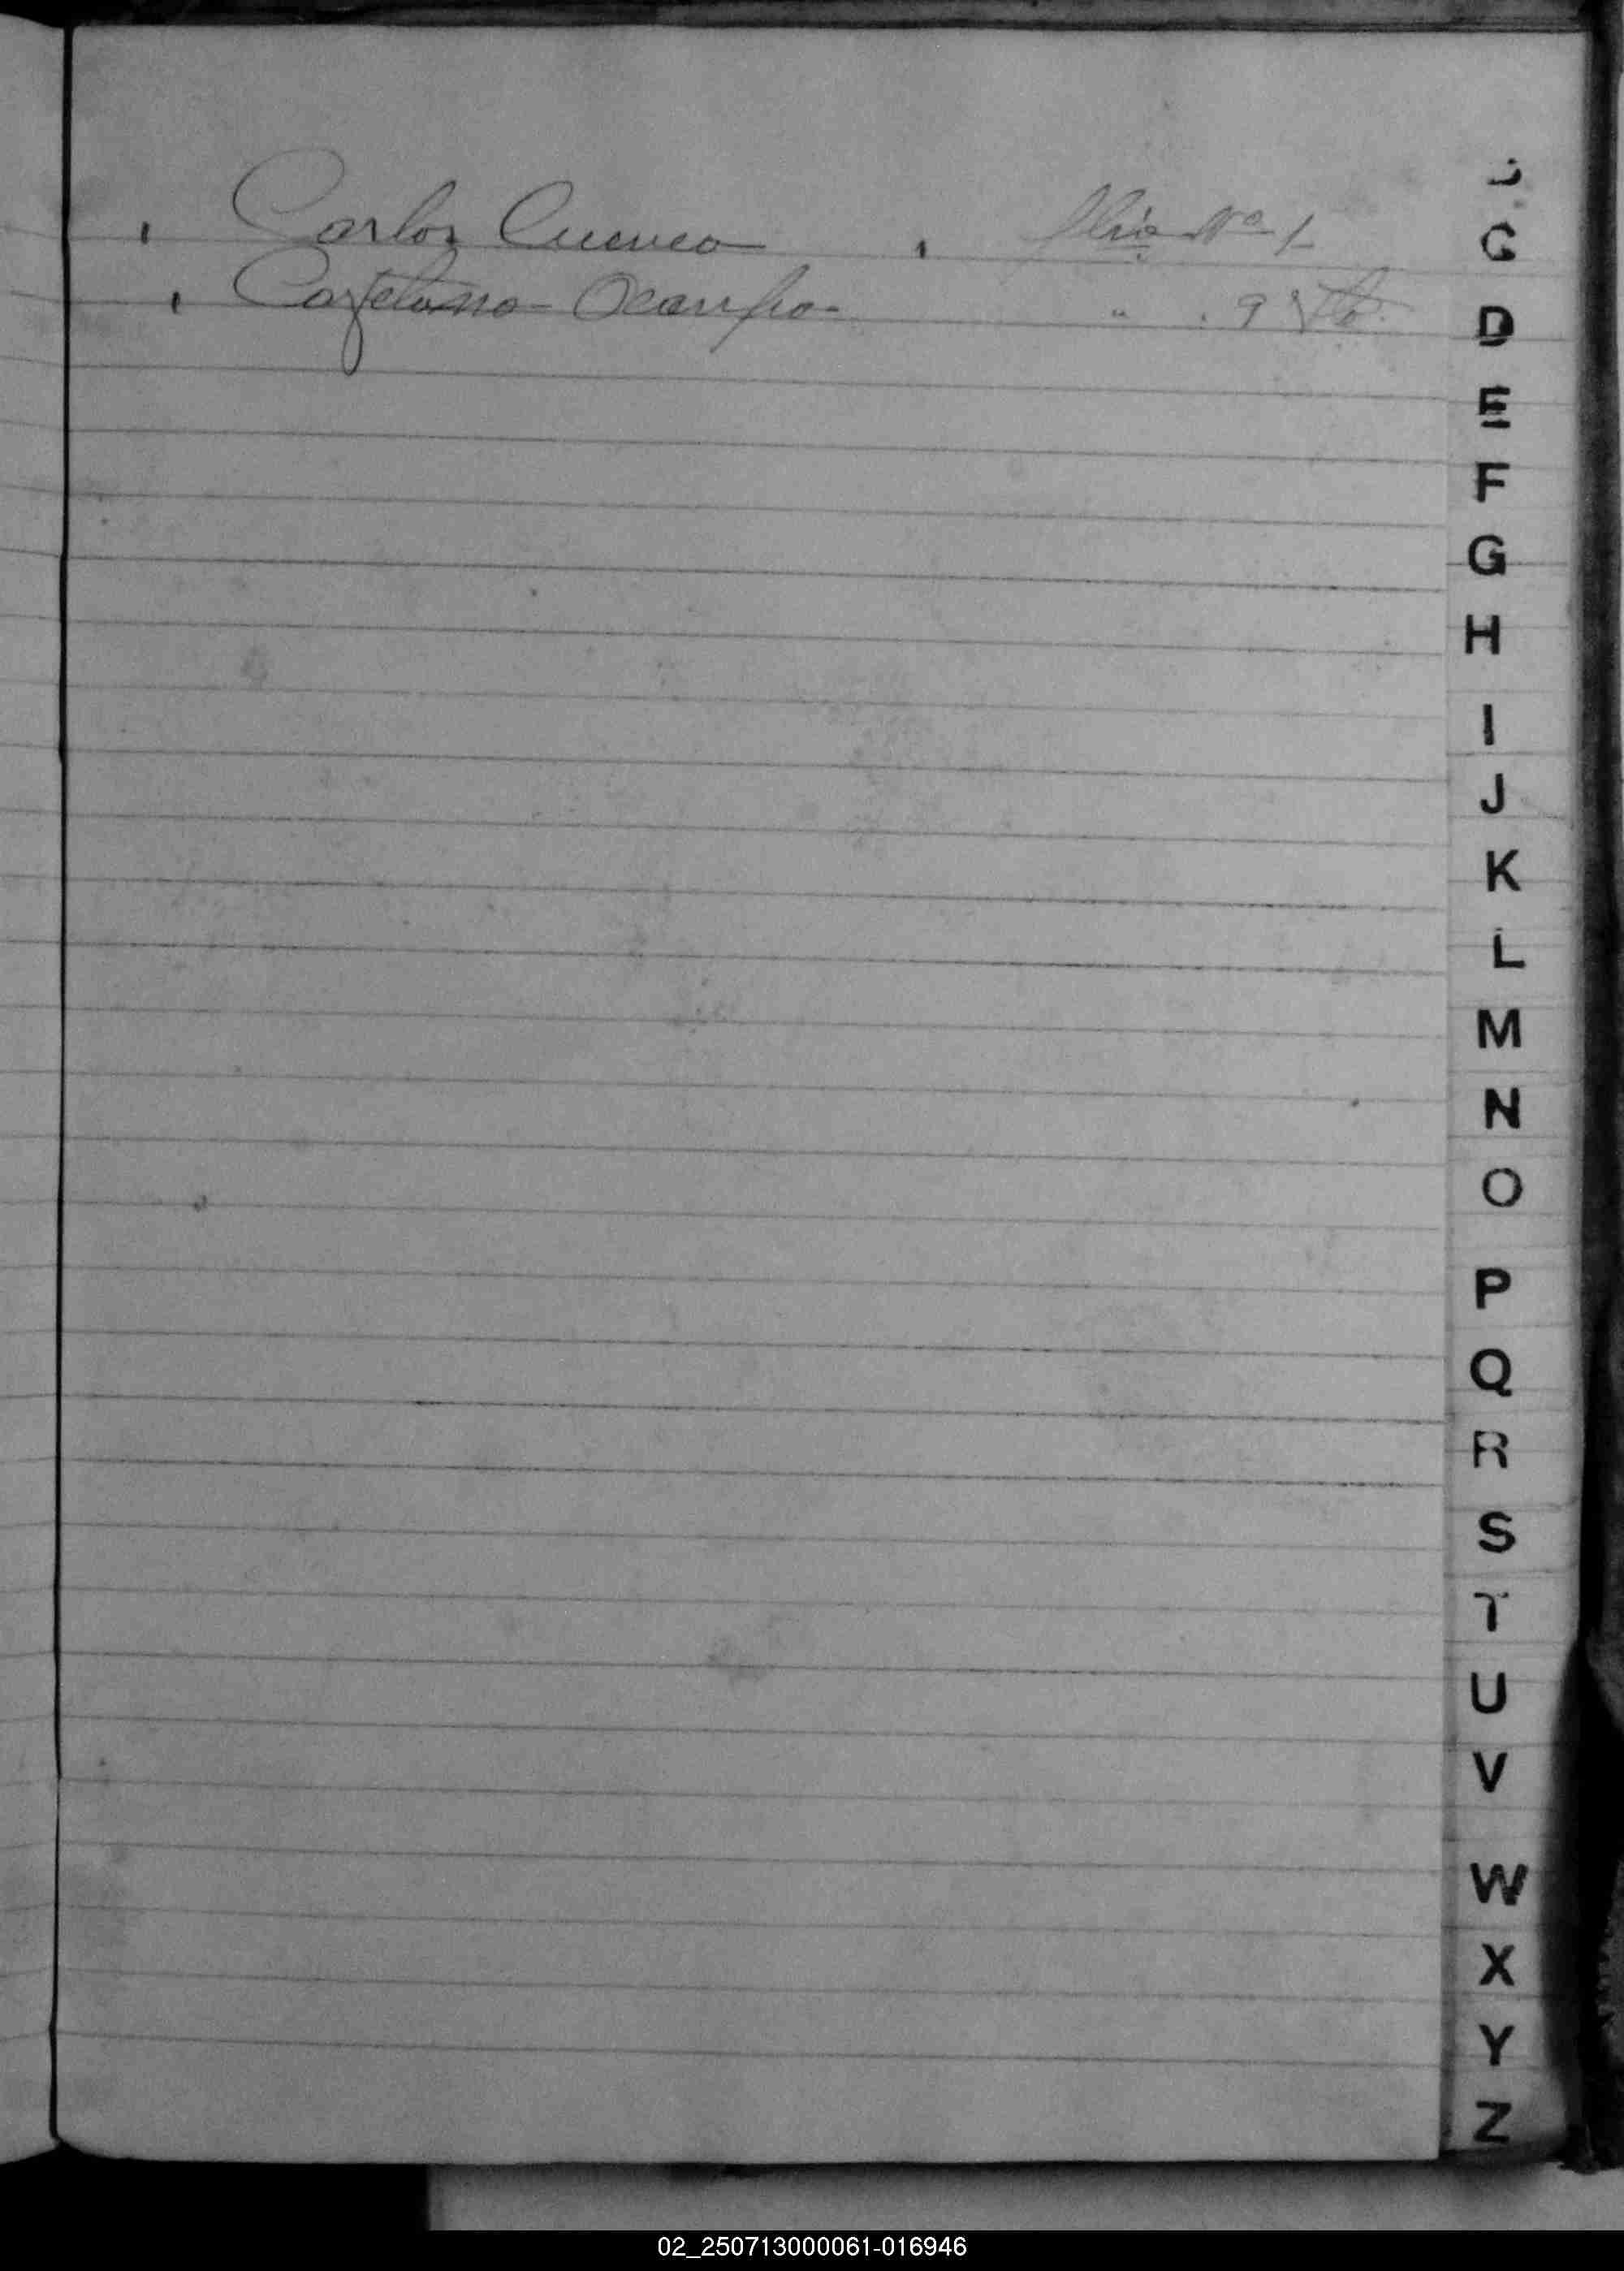 Carlos Cuenca folio Nº 1
Cayetano Ocampo " 9 Vto.
C
D
E
F
G
H
I
J
K
L
M
N
O
P
Q
R
S
T
U
V
W
X
Y
Z
02_250713000061-016946